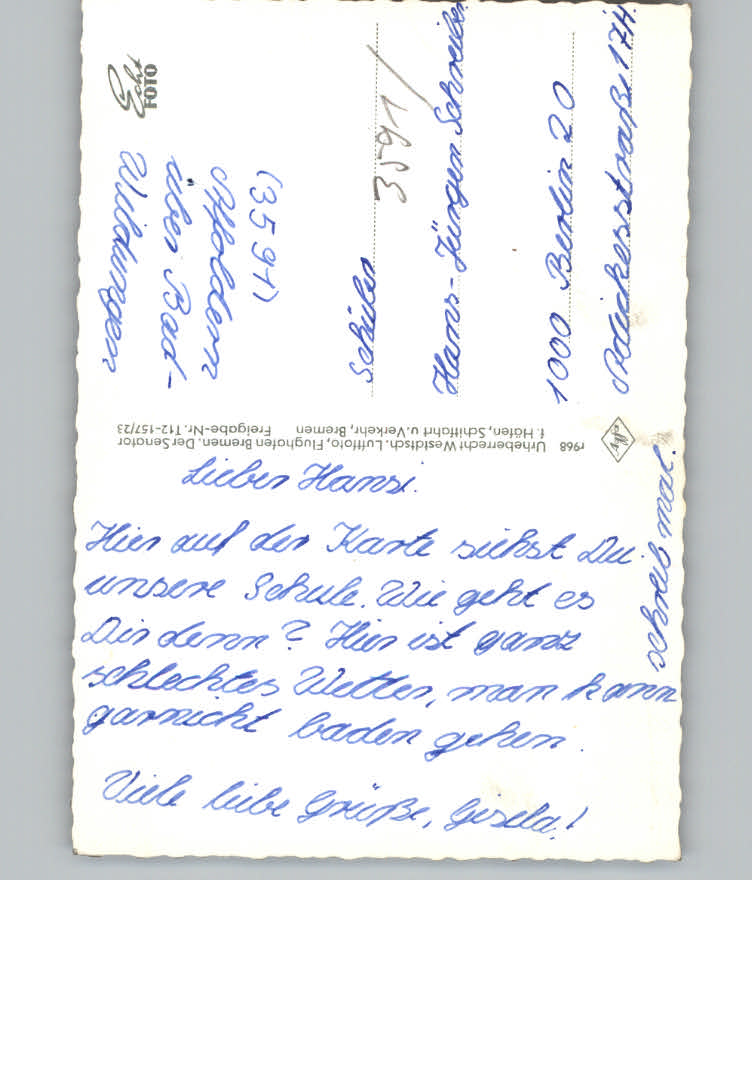 Lieber Hansi.
Hier auf der Karte siehst Du
unsere Schule. Wie geht es
Dir denn? Hier ist ganz
schlechtes Wetter, man kann
garnicht baden gehen.
Viele liebe Grüße, Gisela!
schreib mal.
r968 Urheberrecht Westdtsch. Luftfoto, Flughafen Bremen. Der Senator
f. Häfen, Schiffahrt u. Verkehr, Bremen Freigabe-Nr. T12-157/23
Echt
FOTO
(3591)
Affoldern
über Bad-
Wildungen
3591/
Schüler
Hans-Jürgen Schreiber
1000 Berlin 20
174